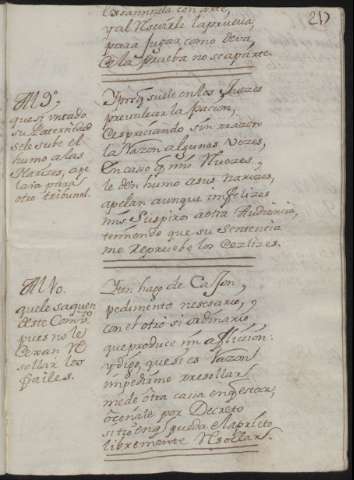 217
Examinela con arte,
y al Usarle la prueva,
para jugar como deva,
la prueba no se aparte.
Al 9.º
que si untado
su Paternidad
se le sube el
humo a las
Narizes, ape
laria para
otro tribunal.
Porq̃ suele en los Juezes
prevalecer la pasion,
Despreciando sin razon
la Razon algunas vezes,
En caso q̃ mis
le den humo a sus narizes,
apelan aunque infelizes
mis suspiros a otra Audiencia,
temiendo que su Sentencia
me repruebe los Dezlizes.
Al 10.
que le saquen
de este Com.to
pues no le
dexan re
sollar los
frailes.
hago de
pedimento nesesario, y
con el otro si ordinario
que produce mi afliccion:
y digo, que si es razon
impedirme resollar,
me de otra casa en q̃ estar,
por Decreto
si no en q̃ pueda
libremente resollar.